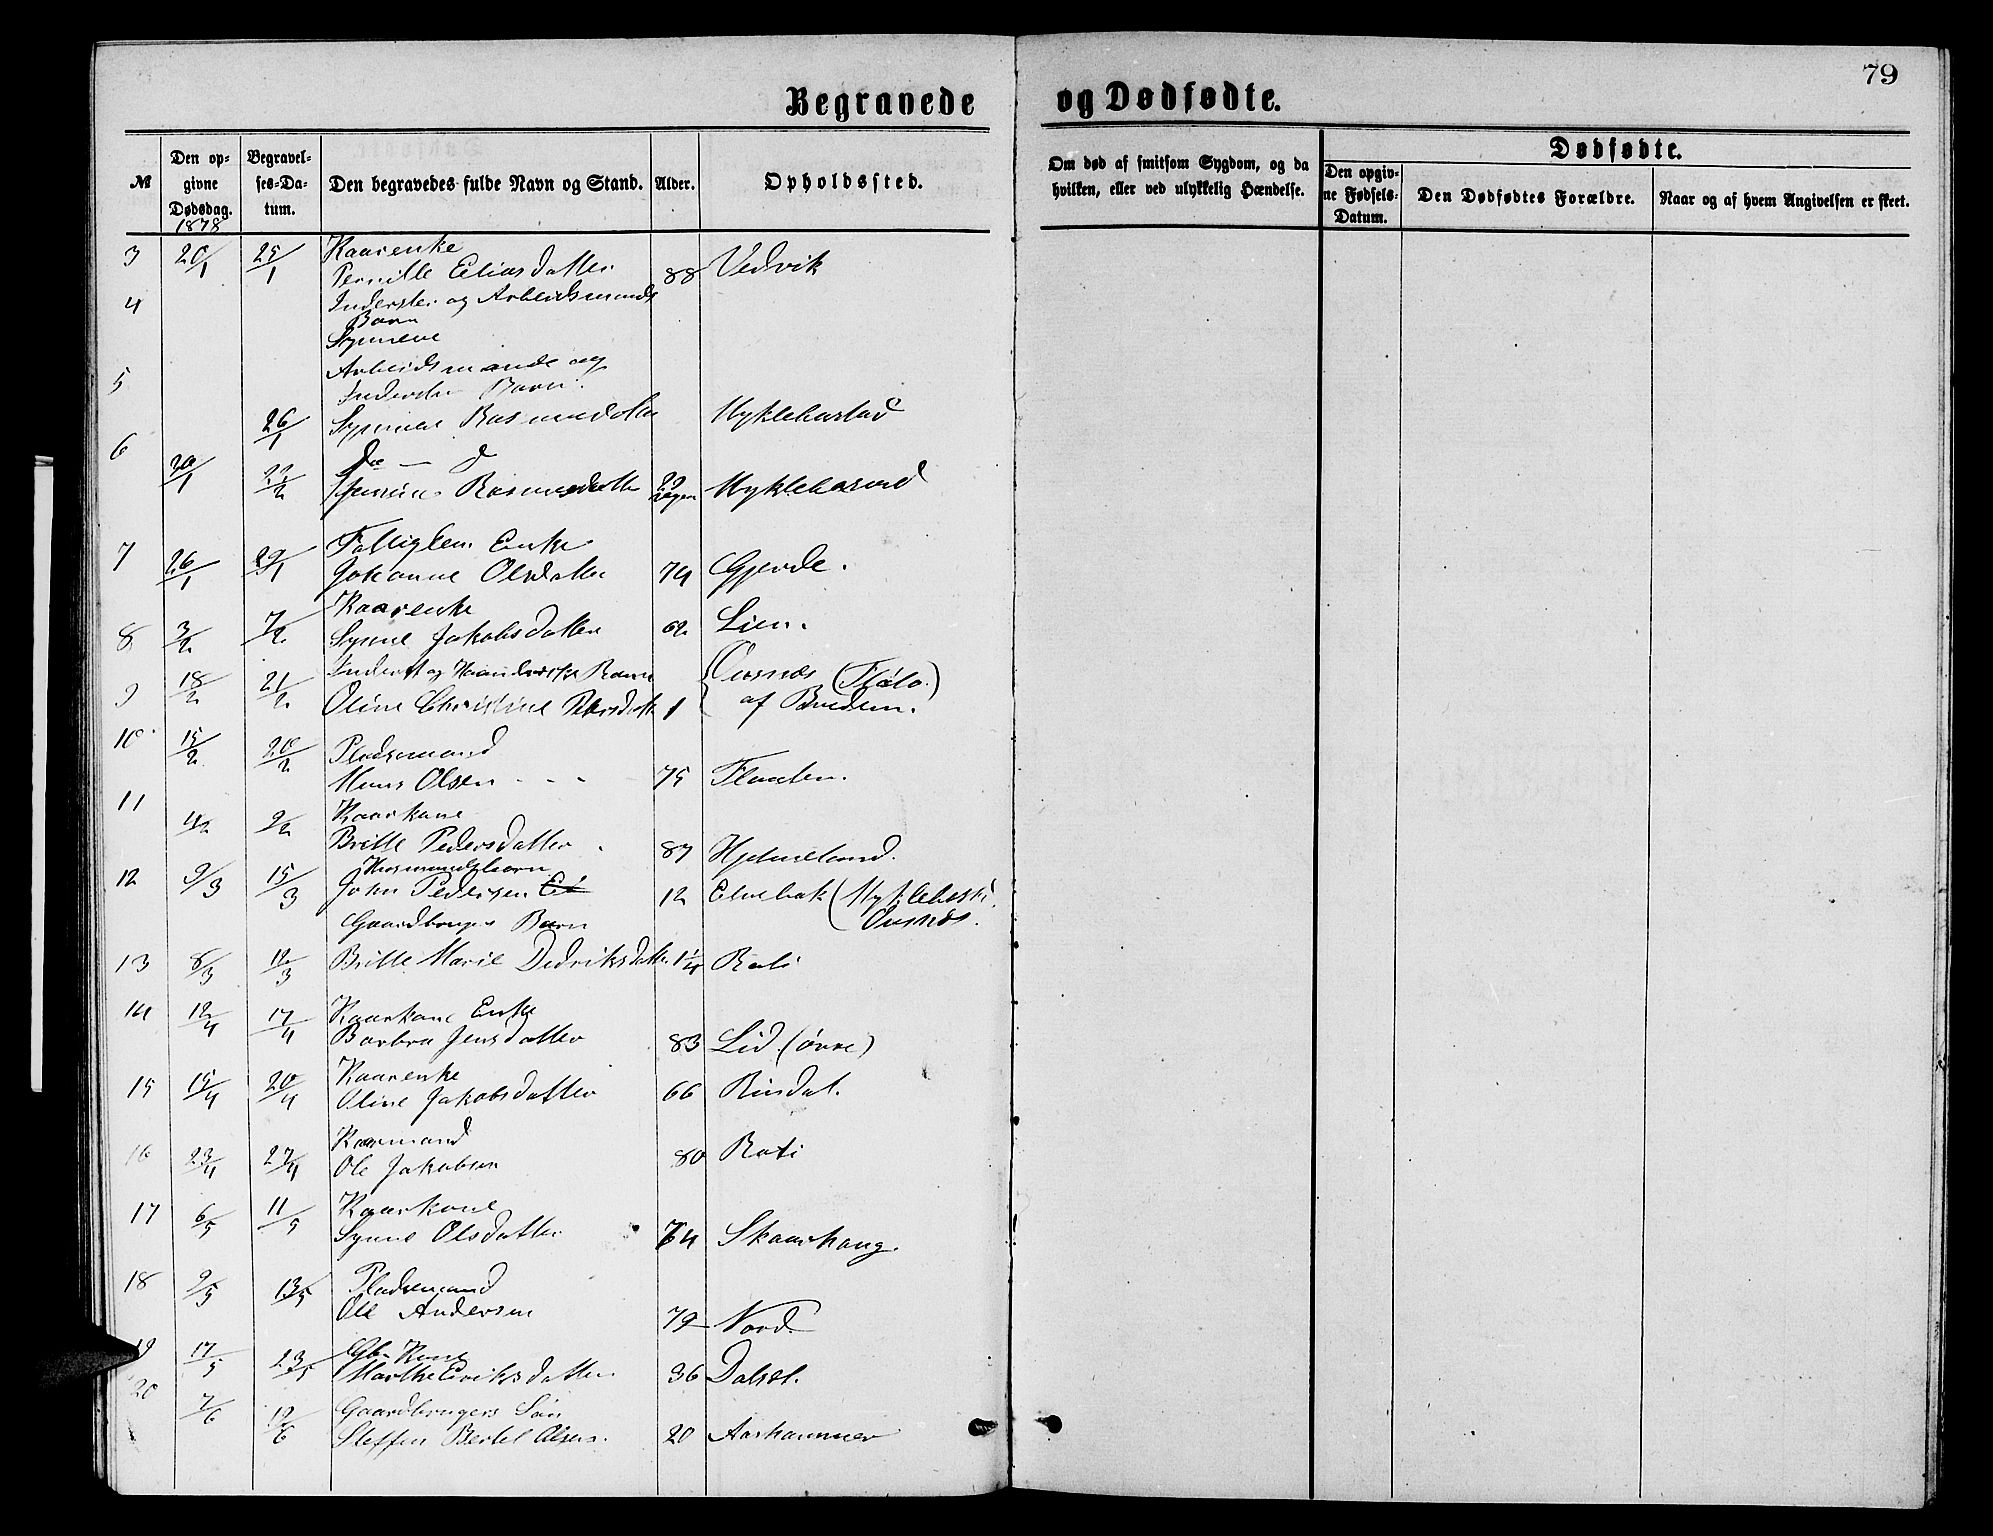 79
Begravede og Dødfødte.
№
Den opgivne Dødsdag.
Begravelses-Datum.
Den begravedes fulde Navn og Stand.
Alder.
Opholdssted.
Om død af smitsom Sygdom, og da hvilken, eller ved ulykkelig Hændelse.
Dødfødte.
Den opgivne Fødsels-Datum.
Den Dødfødtes Forældre.
Naar og af hvem Angivelsen er skeet.
1878
3 20/1 25/1 Kaarenke
Pernille Eliasdatter 88 Vedvik
4 Inderster og Arbeidsmands
Barn
Synneve
5 Arbeidsmands og
Inderster Barn
26/1 Synneve Rasmusdatter Myklebustad
6 Do — d
20/1 22/2 Rasmusdatter 29 Dage Myklebustad
7 Fattiglem Enke
26/1 29/1 Johanne Olsdatter 74 Gjerde.
Kaarenke
8 3/2 7/2 Synne Jakobsdatter 62 Lien.
Inderst og Haandverks Barn
9 18/2 21/2 Oline Christine Petersdatter 1 Ousnes (Flolo.)
af Breden.
10 15/2 20/2 Pladsemand
Mons Olsen - - - 75 Flaaten.
11 4/2 9/2 Kaarkone
Britte Pedersdatter 87 Hjelmeland.
Husmandsbarn
12 9/3 15/3 John Pedersen 12 Elvebak (Myklebust
Ousnes.
Gaardbruger Barn
13 8/3 12/3 Britte Marie Dedriksdatter 1 1/4 Roti
14 12/4 17/4 Kaarkone Enke
Barbra Jensdatter 83 Lid (øvre)
15 15/4 20/4 Kaarenke
Oline Jakobsdatter 66 Rindal.
16 23/4 27/4 Kaarmand
Ole Jakobsen 80 Roti
17 6/5 11/5 Kaarkone
Synne Olsdatter 64 Skaarhaug.
18 9/5 13/5 Pladsemand
Ole Andersen 79 Nord
19 17/5 23/5 Gb. Kone
Marthe Eriksdatter 36 Dalset.
20 7/6 12/6 Gaardbrugers Søn
Steffen Bertel Olsen. 20 Aarhammer